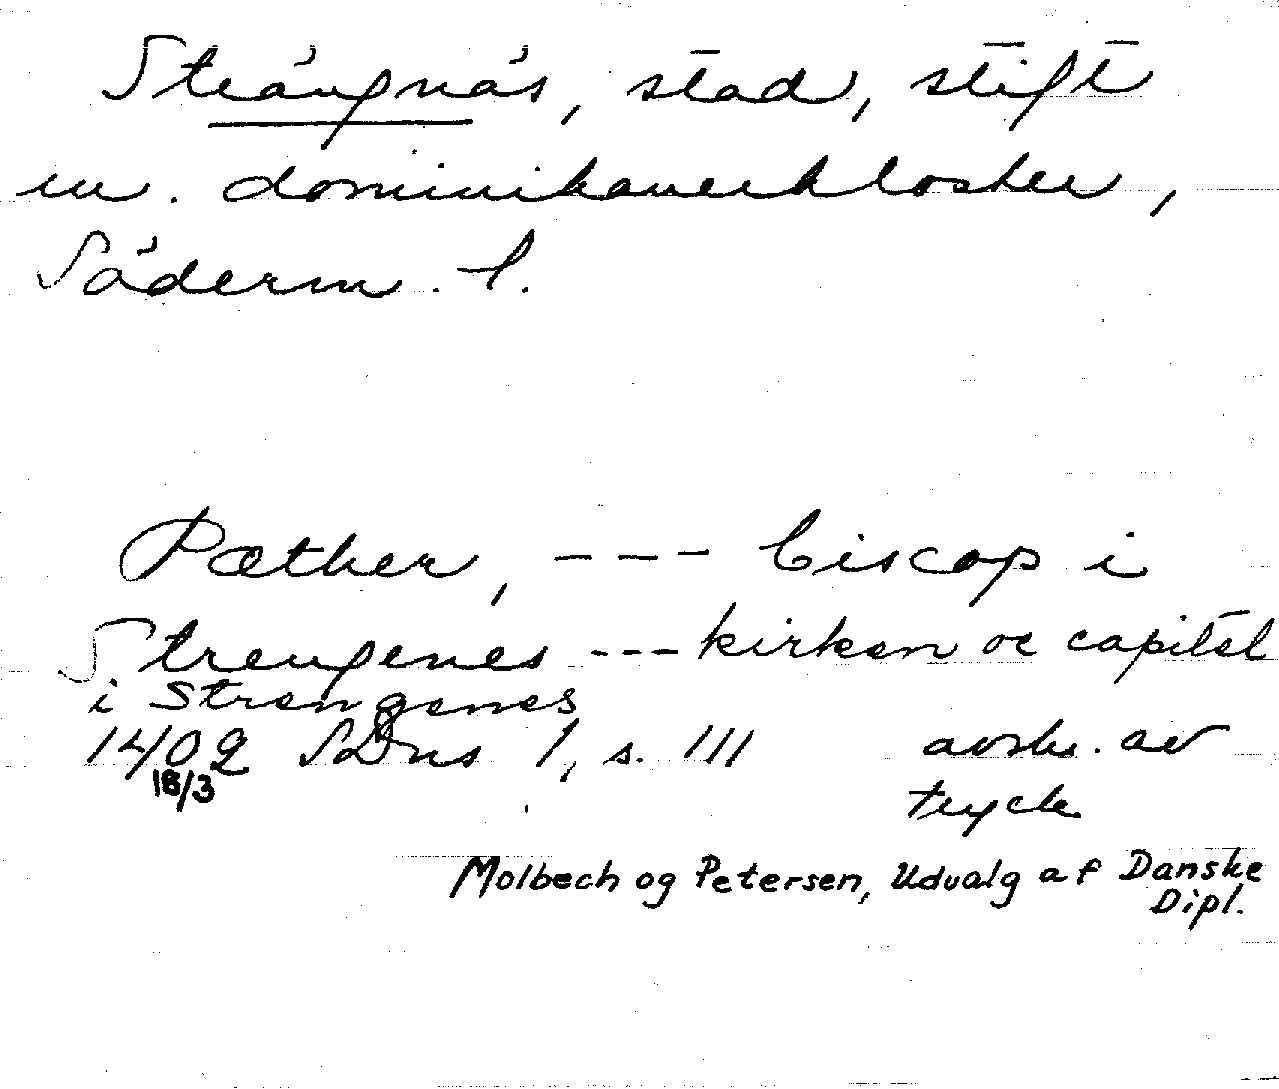 Strängnäs, stad, stift
m. dominikanerkloster,
Söderm. l.
Pæther, --- biscop i
Strengenes --- kirken oc capitel
i Strengenes
1402 SDns 1, s. 111 avskr. av
18/3 tryck
Molbech og Petersen, Udvalg af Danske
Dipl.